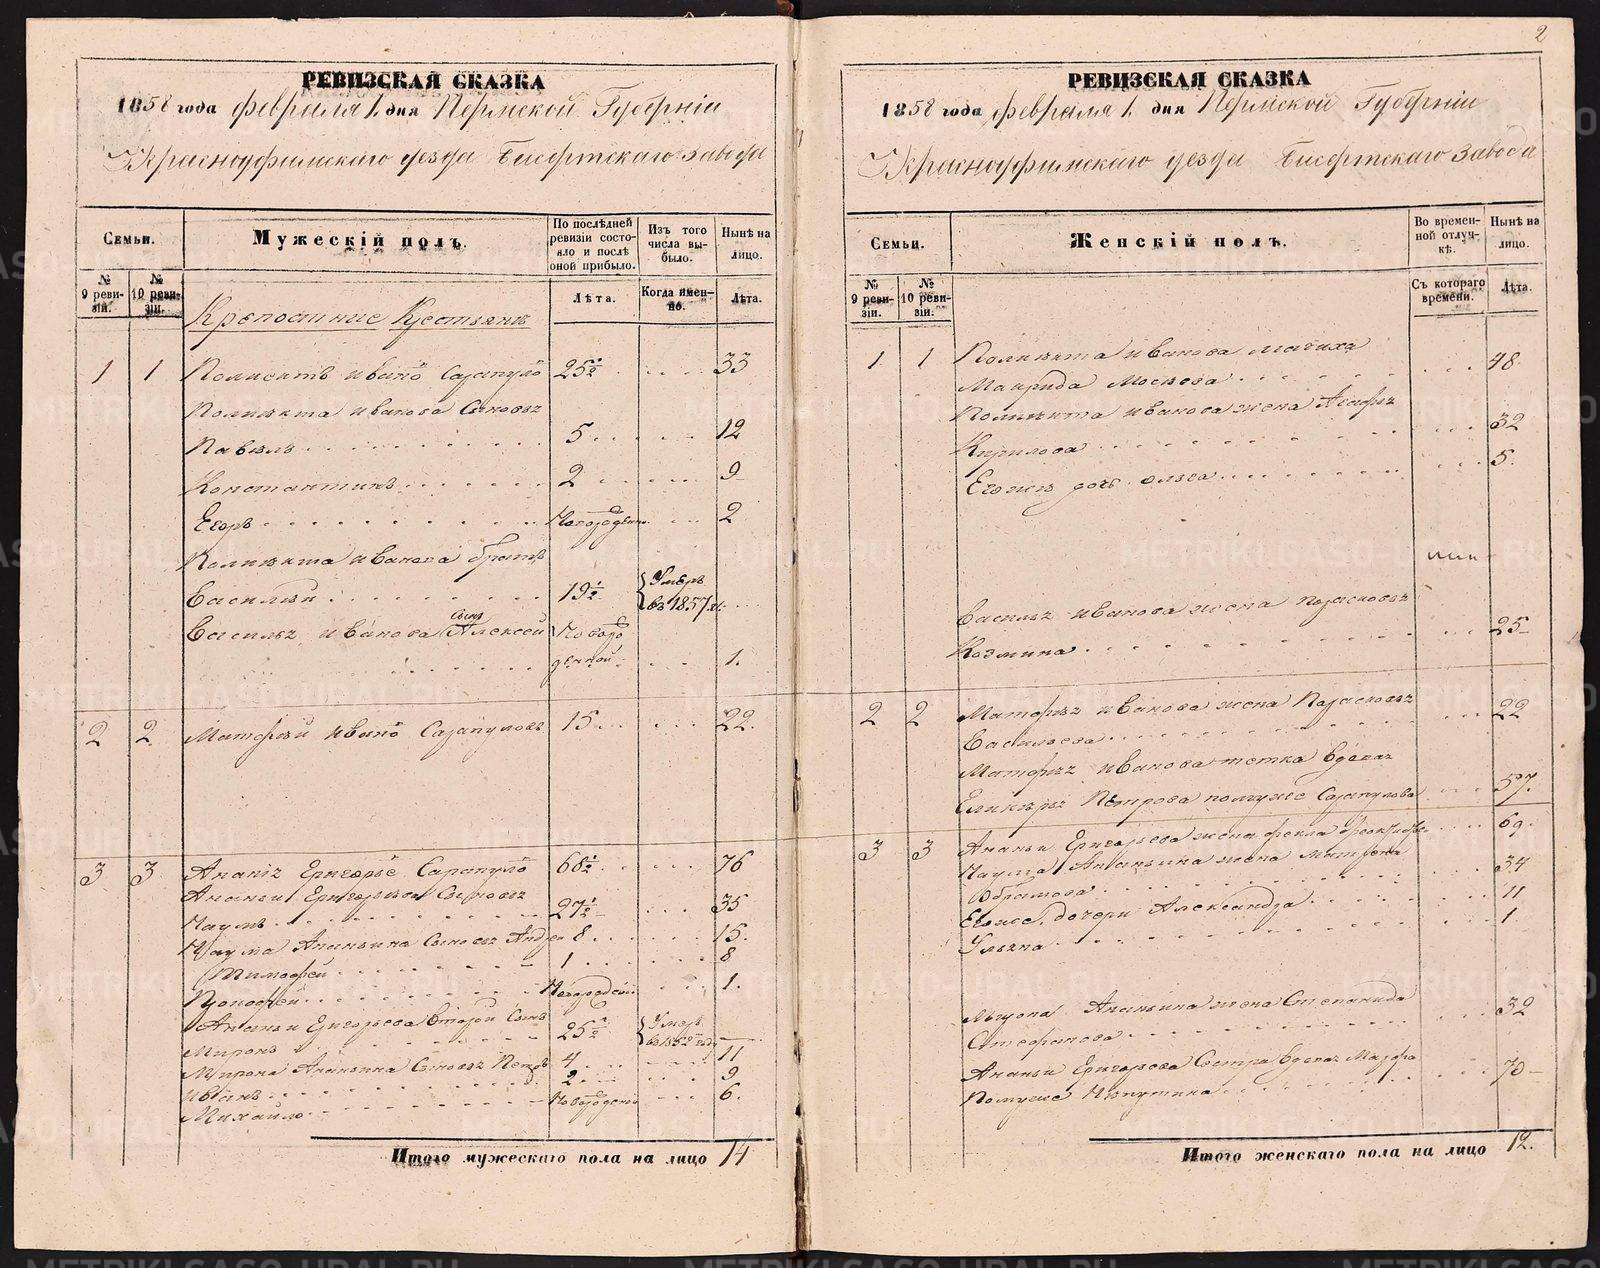 2
РЕВИЗСКАЯ СКАЗКА
1858 года февраля 1. дня Пермской Губерніи
Красноуфимскаго уезда Бисертскаго Завода
Семьи.
Мужескій полъ.
По послѣдней ревизіи состояло и послѣ оной прибыло.
Изъ того числа выбыло.
Нынѣ на лицо.
№ 9 ревизіи.
№ 10 ревизіи.
Лѣта.
Когда именно.
Лѣта.
Крѣпостные Крестьяне
1 1 Поликитъ Ивано Сарапуло 25½ 33
Поликита Иванова Сыновья
Павелъ 5 12
Константинъ 2 9
Егоръ Новорожден 2
Поликита Иванова братъ
Василій 19½ Умеръ въ 1857 г.
Василья Иванова Сынъ Алексей Новоро
жденной 1.
2 2 Матфей Ивано Сарапуловъ 15 22.
3 3 Ананій Григорье Сарапуло 68½ 76
Ананьи Григорьева Сыновья
Наумъ 27½ 35
Наума Ананьина Сыновья Андрей 8 15.
Тимофей 1 8
Прокофей Новорожден 1.
Ананьи Григорьева Второй Сынъ
Миронъ 25½ Умеръ
Мирона Ананьина Сыновья Петръ 4 11
Иванъ 2 9
Михайло Новорожден 6.
Итого мужескаго пола на лицо 14
РЕВИЗСКАЯ СКАЗКА
1858 года февраля 1. дня Пермской Губерніи
Красноуфимскаго уезда Бисертскаго Завода
Семьи.
Женскій полъ.
Во временной отлучкѣ.
Нынѣ на лицо.
№ 9 ревизіи.
№ 10 ревизіи.
Съ котораго времени.
Лѣта.
1 1 Поликита Иванова мачиха
Маврида Мосеева 48.
Поликита Иванова жена Агафья
Кирилова 32
Егоже дочь Ольга 5.
Василья Иванова жена Парасковья
Козмина 25
2 2 Матфея Иванова жена Парасковья
Васильева 22
Матфея Иванова тетка вдова
Петрова помуже Сарапулова 57.
3 3 Ананьи Григорьева жена Фекла 69.
Наума Ананьина жена Матрена
Абрамова 34
Егоже дочери Александра 11
Ульяна 1.
Мирона Ананьина жена Степанида
Стефанова 32
Ананьи Григорьева Сестра вдова
Помуже 70
Итого женскаго пола на лицо 12.
METRIKI.GASO-URAL.RU